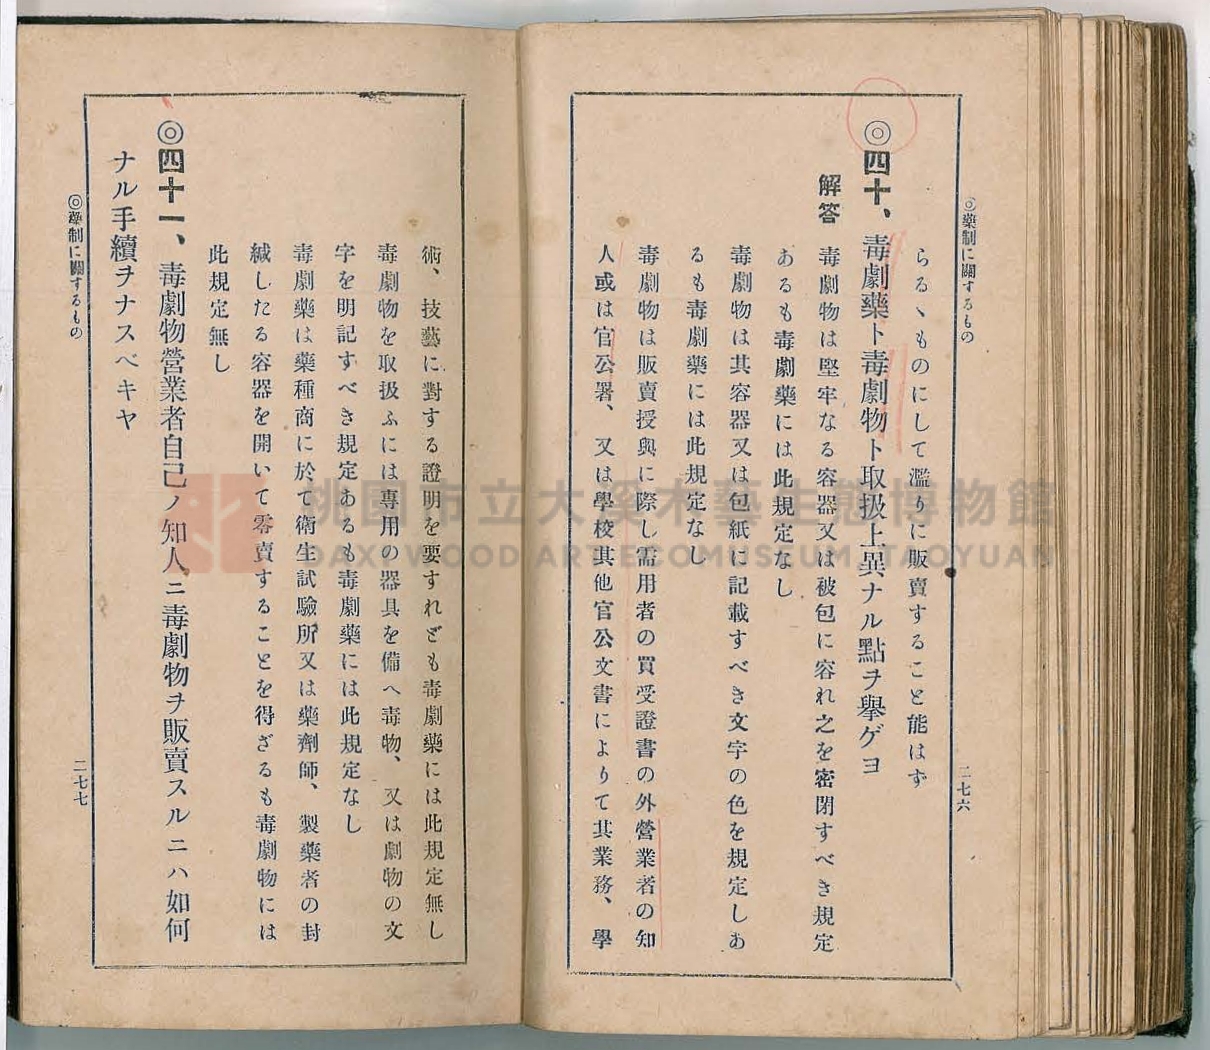 ◎藥制に關するもの
二七六
らるヽものにして濫りに販賣すること能はず
◎四十、毒劇藥ト毒劇物ト取扱上異ナル點ヲ擧ゲヨ
解答 毒劇物は堅牢なる容器又は被包に容れ之を密閉すべき規定
あるも毒劇藥には此規定なし
毒劇物は其容器又は包紙に記載すべき文字の色を規定しあ
るも毒劇藥には此規定なし
毒劇物は販賣授與に際し需用者の買受證書の外營業者の知
人或は官公署、又は學校其他官公文書によりて其業務、學
術、技藝に對する證明を要すれども毒劇藥には此規定無し
毒劇物を取扱ふには專用の器具を備へ毒物、又は劇物の文
字を明記すべき規定あるも毒劇藥には此規定なし
毒劇藥は藥種商に於て衛生試驗所又は藥劑師、製藥者の封
緘したる容器を開いて零賣することを得ざるも毒劇物には
此規定無し
◎四十一、毒劇物營業者自己ノ知人ニ毒劇物ヲ販賣スルニハ如何
ナル手續ヲナスベキヤ
◎藥制に關するもの
二七七
桃園市立大溪木藝生態博物館
DAXI WOOD ART ECOMUSEUM, TAOYUAN